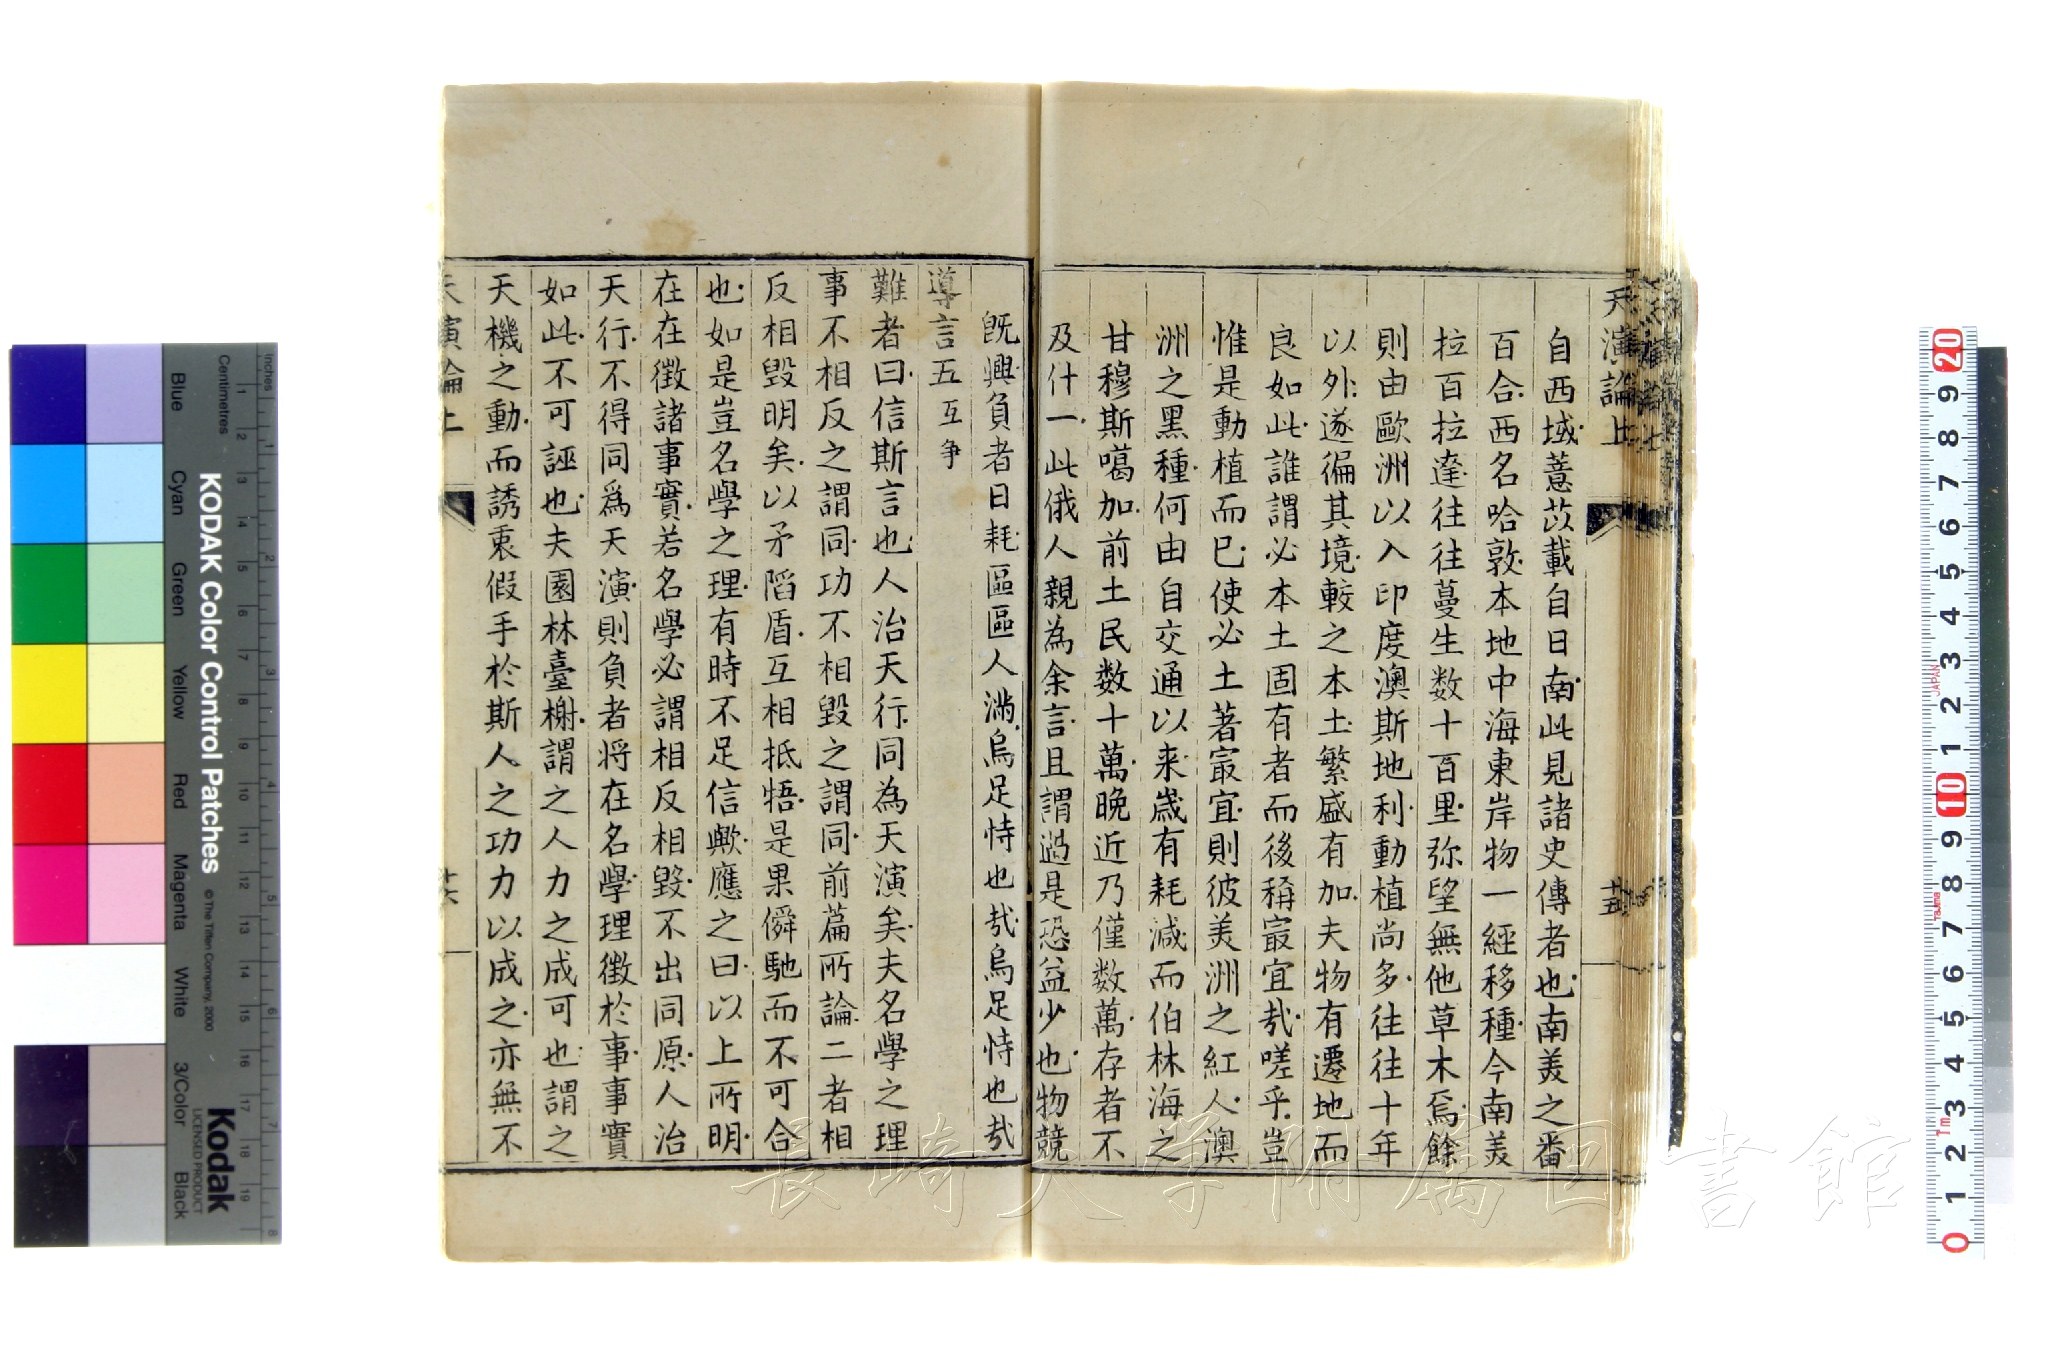 天演論上
十五
自西域薏苡載自日南此見諸史傳者也南美之番
百合西名哈敦本地中海東岸物一經移種今南美
拉百拉達往往蔓生數十百里弥望無他草木焉餘
則由歐洲以入印度澳斯地利動植尚多往往十年
以外遂徧其境較之本土繁盛有加夫物有遷地而
良如此誰謂必本土固有者而後稱寂宜哉嗟乎豈
惟是動植而已使必土著寂宜則彼美洲之紅人澳
洲之黑種何由自交通以来嵗有耗減而伯林海之
甘穆斯噶加前土民数十萬晚近乃僅数萬存者不
及什一此俄人親為余言且謂過是恐益少也物競
既興負者日耗區區人滿烏足恃也哉烏足恃也哉
導言五 互争
難者曰信斯言也人治天行同為天演矣夫名學之理
事不相反之謂同功不相毀之謂同前篇所論二者相
反相毀明矣以矛陷盾互相抵牾是果僢馳而不可合
也如是豈名學之理有時不足信歟應之曰以上所明
在在徵諸事實若名學必謂相反相毀不出同原人治
天行不得同爲天演則負者将在名學理徵於事事實
如此不可誣也夫園林臺榭謂之人力之成可也謂之
天機之動而誘衷假手於斯人之功力以成之亦無不
天演論上
十六
KODAK Color Control Patches
© The Tiffen Company, 2000
Kodak
LICENSED PRODUCT
Inches
Centimetres
Blue
Cyan
Green
Yellow
Red
Magenta
White
3/Color
Black
1 2 3 4 5 6 7 8 9 10 11 12 13 14 15 16 17 18 19
1 2 3 4 5 6 7 8
20 9 8 7 6 5 4 3 2 1 10 9 8 7 6 5 4 3 2 1 0
JAPAN
Tajima
Tm
長崎大学附属図書館